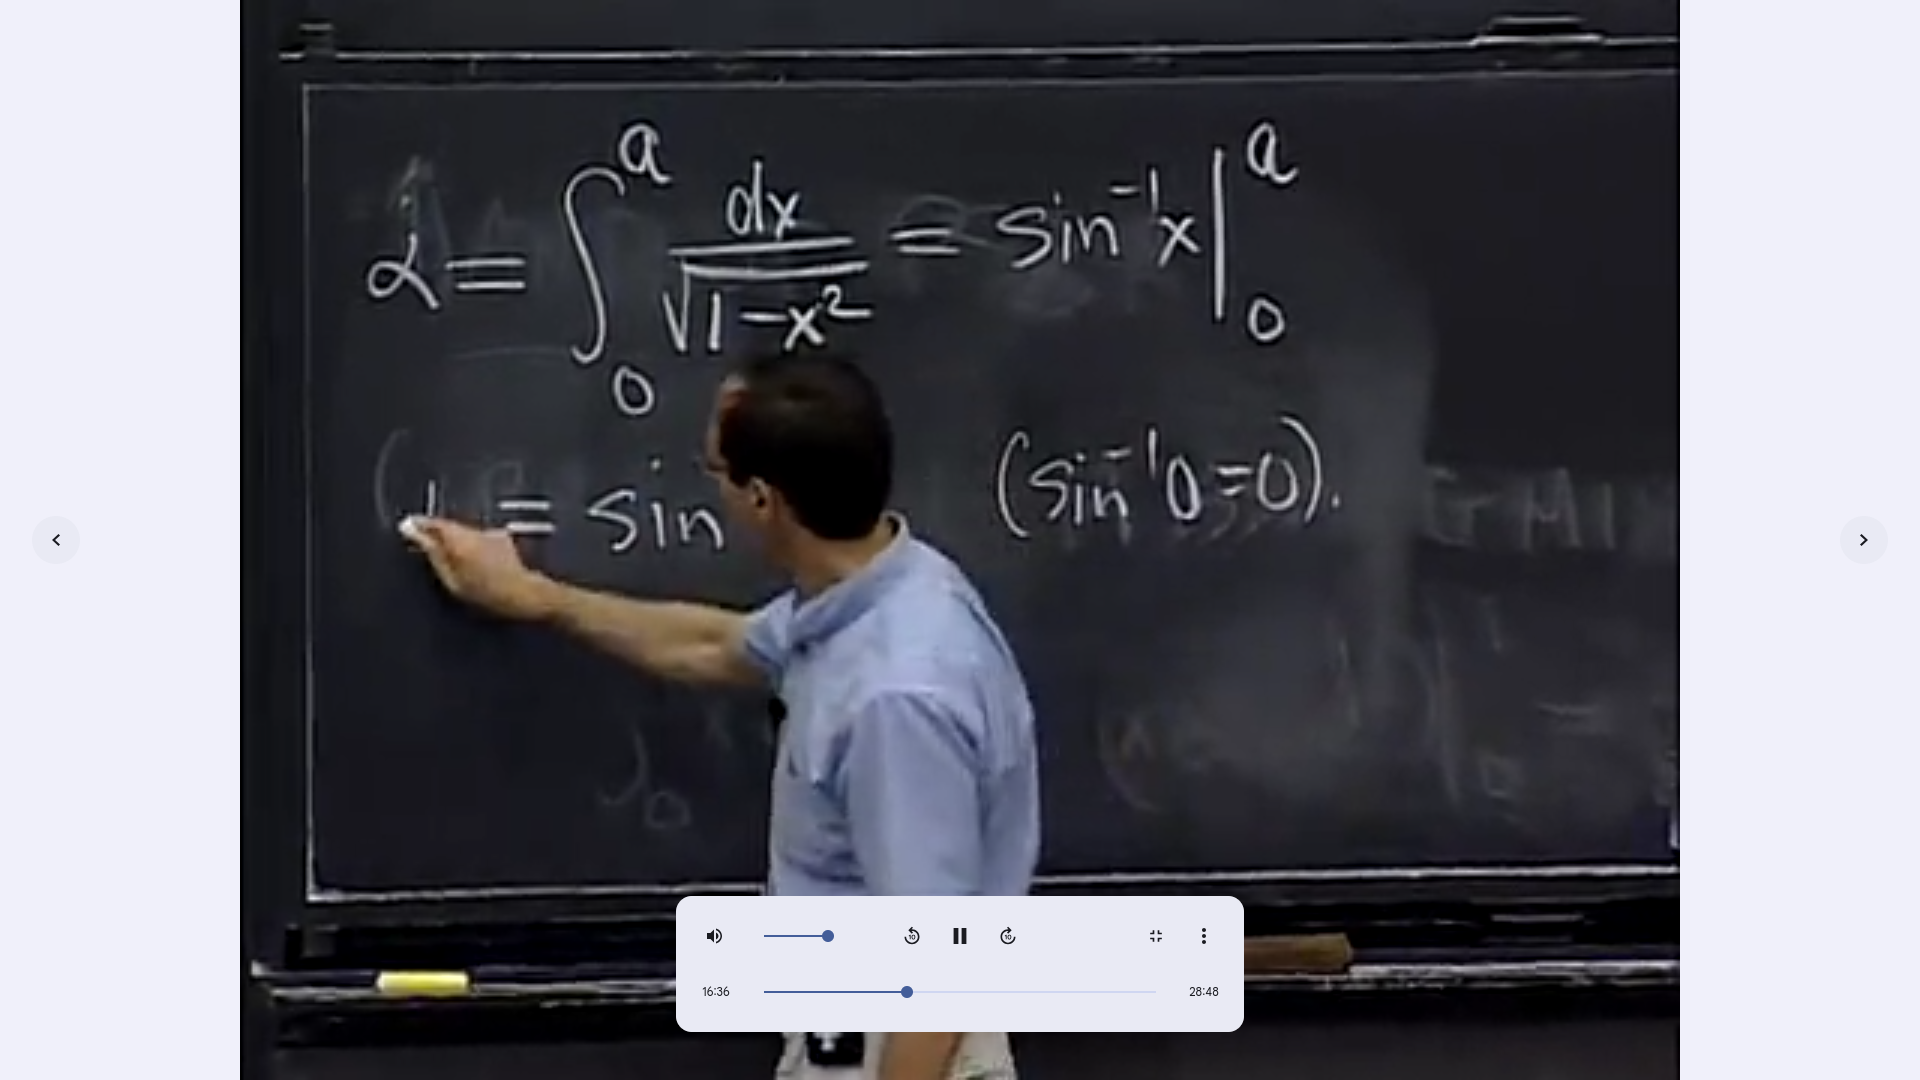 α = ∫₀ᵃ dx/√(1-x²) = sin⁻¹x |₀ᵃ
= sin (sin⁻¹0=0).
16:36 28:48